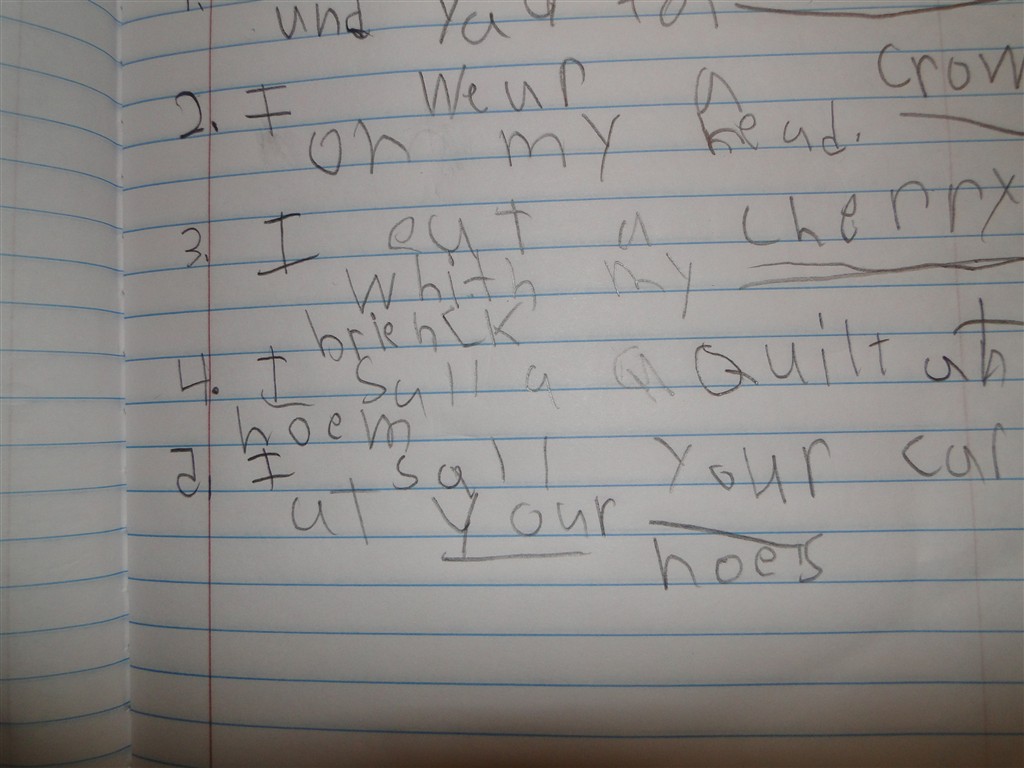 1.
und
2. I wear a crow
on my head.
3. I eat a cherry
whith my
brienck
4. I sall a Quilt at
hoem
I sall your car
at your
hoes